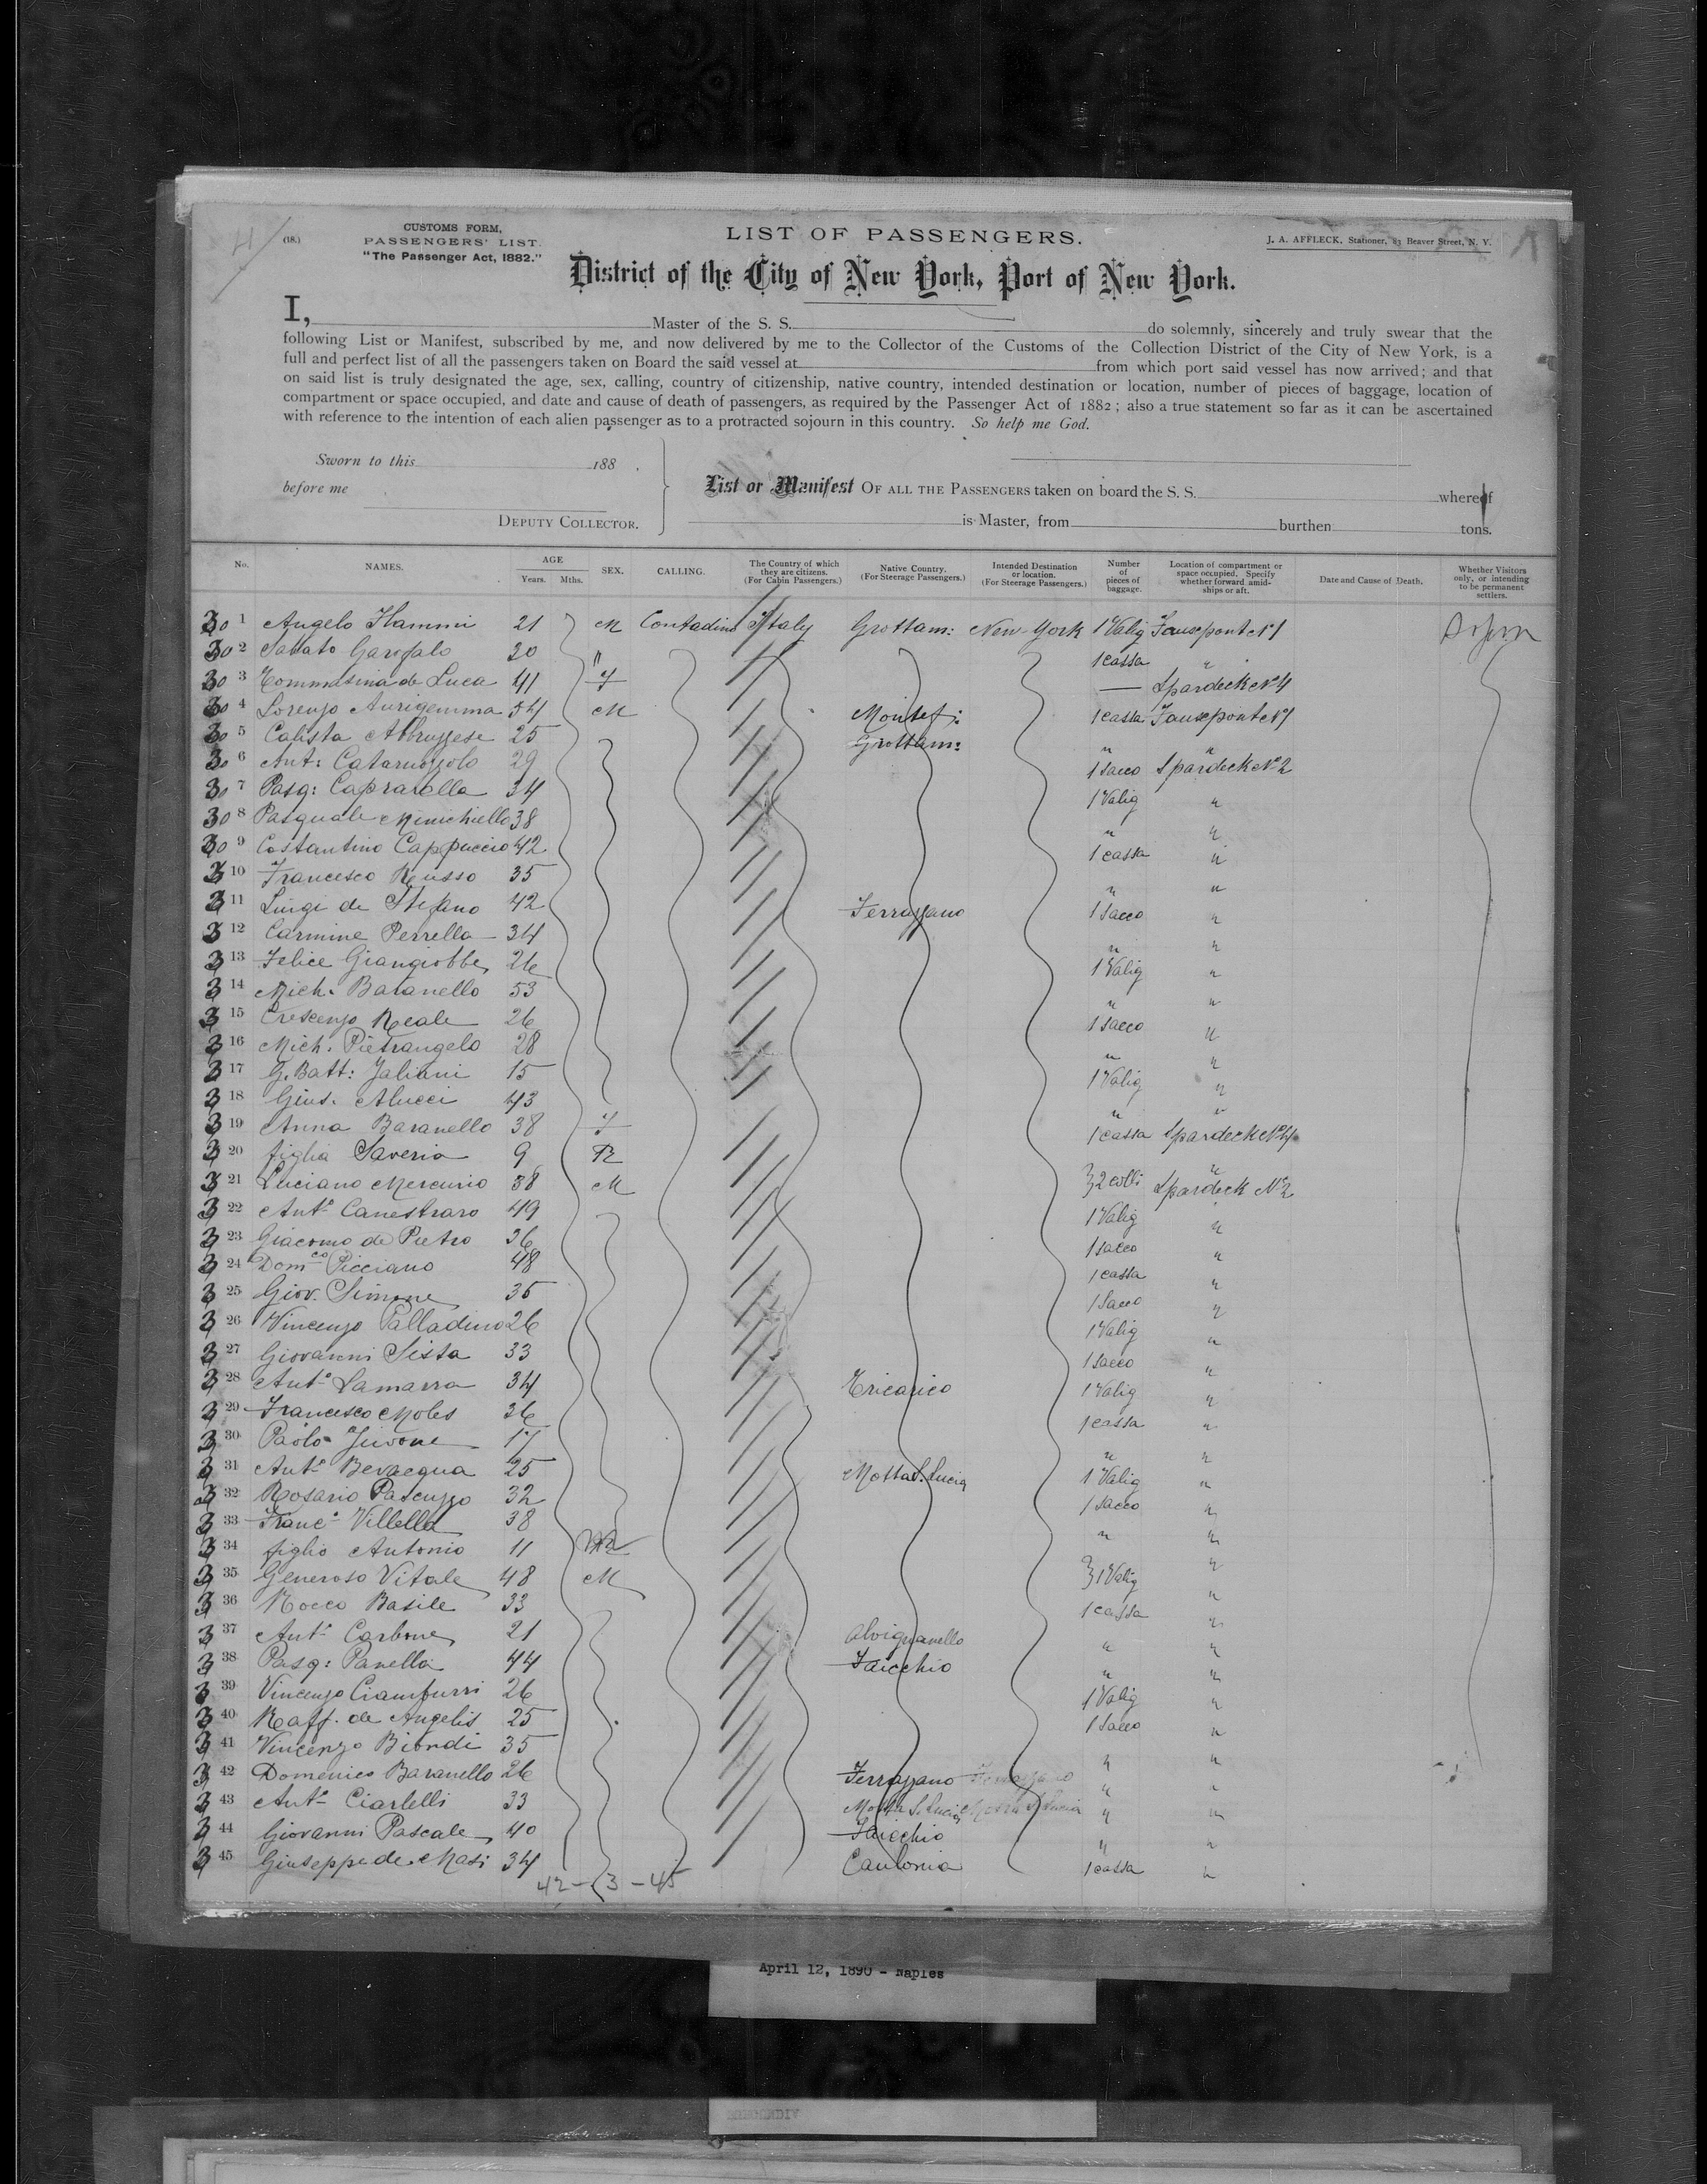 (18.)
CUSTOMS FORM,
PASSENGERS' LIST.
"The Passenger Act, 1882."
LIST OF PASSENGERS.
J. A. AFFLECK, Stationer, 83 Beaver Street, N. Y.
District of the City of New York, Port of New York.
I, Master of the S. S. do solemnly, sincerely and truly swear that the
following List or Manifest, subscribed by me, and now delivered by me to the Collector of the Customs of the Collection District of the City of New York, is a
full and perfect list of all the passengers taken on Board the said vessel at from which port said vessel has now arrived; and that
on said list is truly designated the age, sex, calling, country of citizenship, native country, intended destination or location, number of pieces of baggage, location of
compartment or space occupied, and date and cause of death of passengers, as required by the Passenger Act of 1882; also a true statement so far as it can be ascertained
with reference to the intention of each alien passenger as to a protracted sojourn in this country. So help me God.
Sworn to this 188 .
before me
DEPUTY COLLECTOR.
List or Manifest OF ALL THE PASSENGERS taken on board the S. S. whereof
is Master, from burthen tons.
No. NAMES. AGE Years. Mths. SEX. CALLING. The Country of which they are citizens. (For Cabin Passengers.) Native Country. (For Steerage Passengers.) Intended Destination or location. (For Steerage Passengers.) Number of pieces of baggage. Location of compartment or space occupied. Specify whether forward amidships or aft. Date and Cause of Death. Whether Visitors only, or intending to be permanent settlers.
30 1 Angelo 21 M Contadino Italy Grottam: New-York 1 Valig
30 2 Sabato Garofalo 20 " 1 cassa "
30 3 Tommasina de Luca 41 f — Spardeck No 4
30 4 Lorenzo Aurigemma 54 M Montef: 1 cassa
30 5 Calista Abbruzzese 25 Grottam: " "
30 6 Ant: Cataruozzolo 29 1 Sacco Spardeck No 2
30 7 Pasq: Capraralla 34 1 Valig "
30 8 Pasquale Minichiello 38 " "
30 9 Costantino Cappuccio 42 1 cassa "
3 10 Francesco Russo 35 " "
3 11 Luigi de Stefano 42 Ferrazzano 1 Sacco "
3 12 Carmine Perrella 34 " "
3 13 Felice Giangiobbe 26 1 Valig "
3 14 Mich. Baranello 53 " "
3 15 Crescenzo Reale 26 1 Sacco "
3 16 Mich. Pietrangelo 28 " "
3 17 G. Batt: Jaliani 15 1 Valig "
3 18 Gius. Alucci 43 " "
3 19 Anna Baranello 38 f 1 cassa Spardeck No 4
3 20 figlia Saveria 9 "
3 21 Luciano Mercurio 38 M 2 colli Spardeck No 2
3 22 Anto Canestraro 49 1 Valig "
3 23 Giacomo de Pietro 36 1 sacco "
3 24 Domco Picciano 48 1 cassa "
3 25 Giov. Simone 35 1 Sacco "
3 26 Vincenzo Palladino 26 1 Valig "
3 27 Giovanni Sista 33 1 Sacco "
3 28 Anto Lamarra 34 Tricarico 1 Valig "
3 29 Francesco Moles 36 1 cassa "
3 30 Paolo 17 " "
3 31 Anto Bevacqua 25 Motta S. Lucia 1 Valig "
3 32 Rosario Pascuzzo 32 1 Sacco "
3 33 Franco Villella 38 " "
3 34 figlio Antonio 11 "
3 35 Generoso Vitale 48 M 1 Valig "
3 36 Rocco Basile 33 1 cassa "
3 37 Anto Carbone 21 Alvignanello " "
3 38 Pasq: Panella 44 Faicchio " "
3 39 Vincenzo Ciamfurri 26 1 Valig "
3 40 Raff. de Angelis 25 1 Sacco "
3 41 Vincenzo Biondi 35 " "
3 42 Domenico Baranello 26 Ferrazzano Ferrazzano " "
3 43 Anto Ciarlelli 33 Motta S. Lucia Motta S. Lucia " "
3 44 Giovanni Pascale 40 Faicchio " "
3 45 Giuseppe de Masi 34 Caulonia 1 cassa "
42 - 3 - 45
April 12, 1890 - Naples